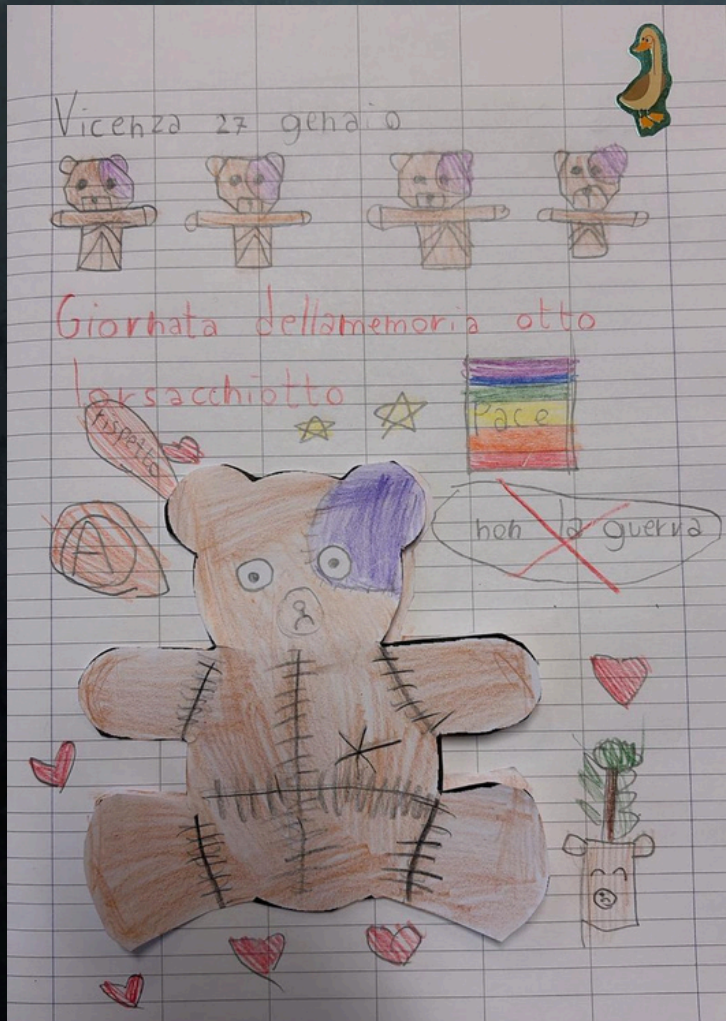 Vicenza 27 genaio
Giornata dellamemoria otto
lorsacchiotto
rispetto
Pace
A
non la guerra